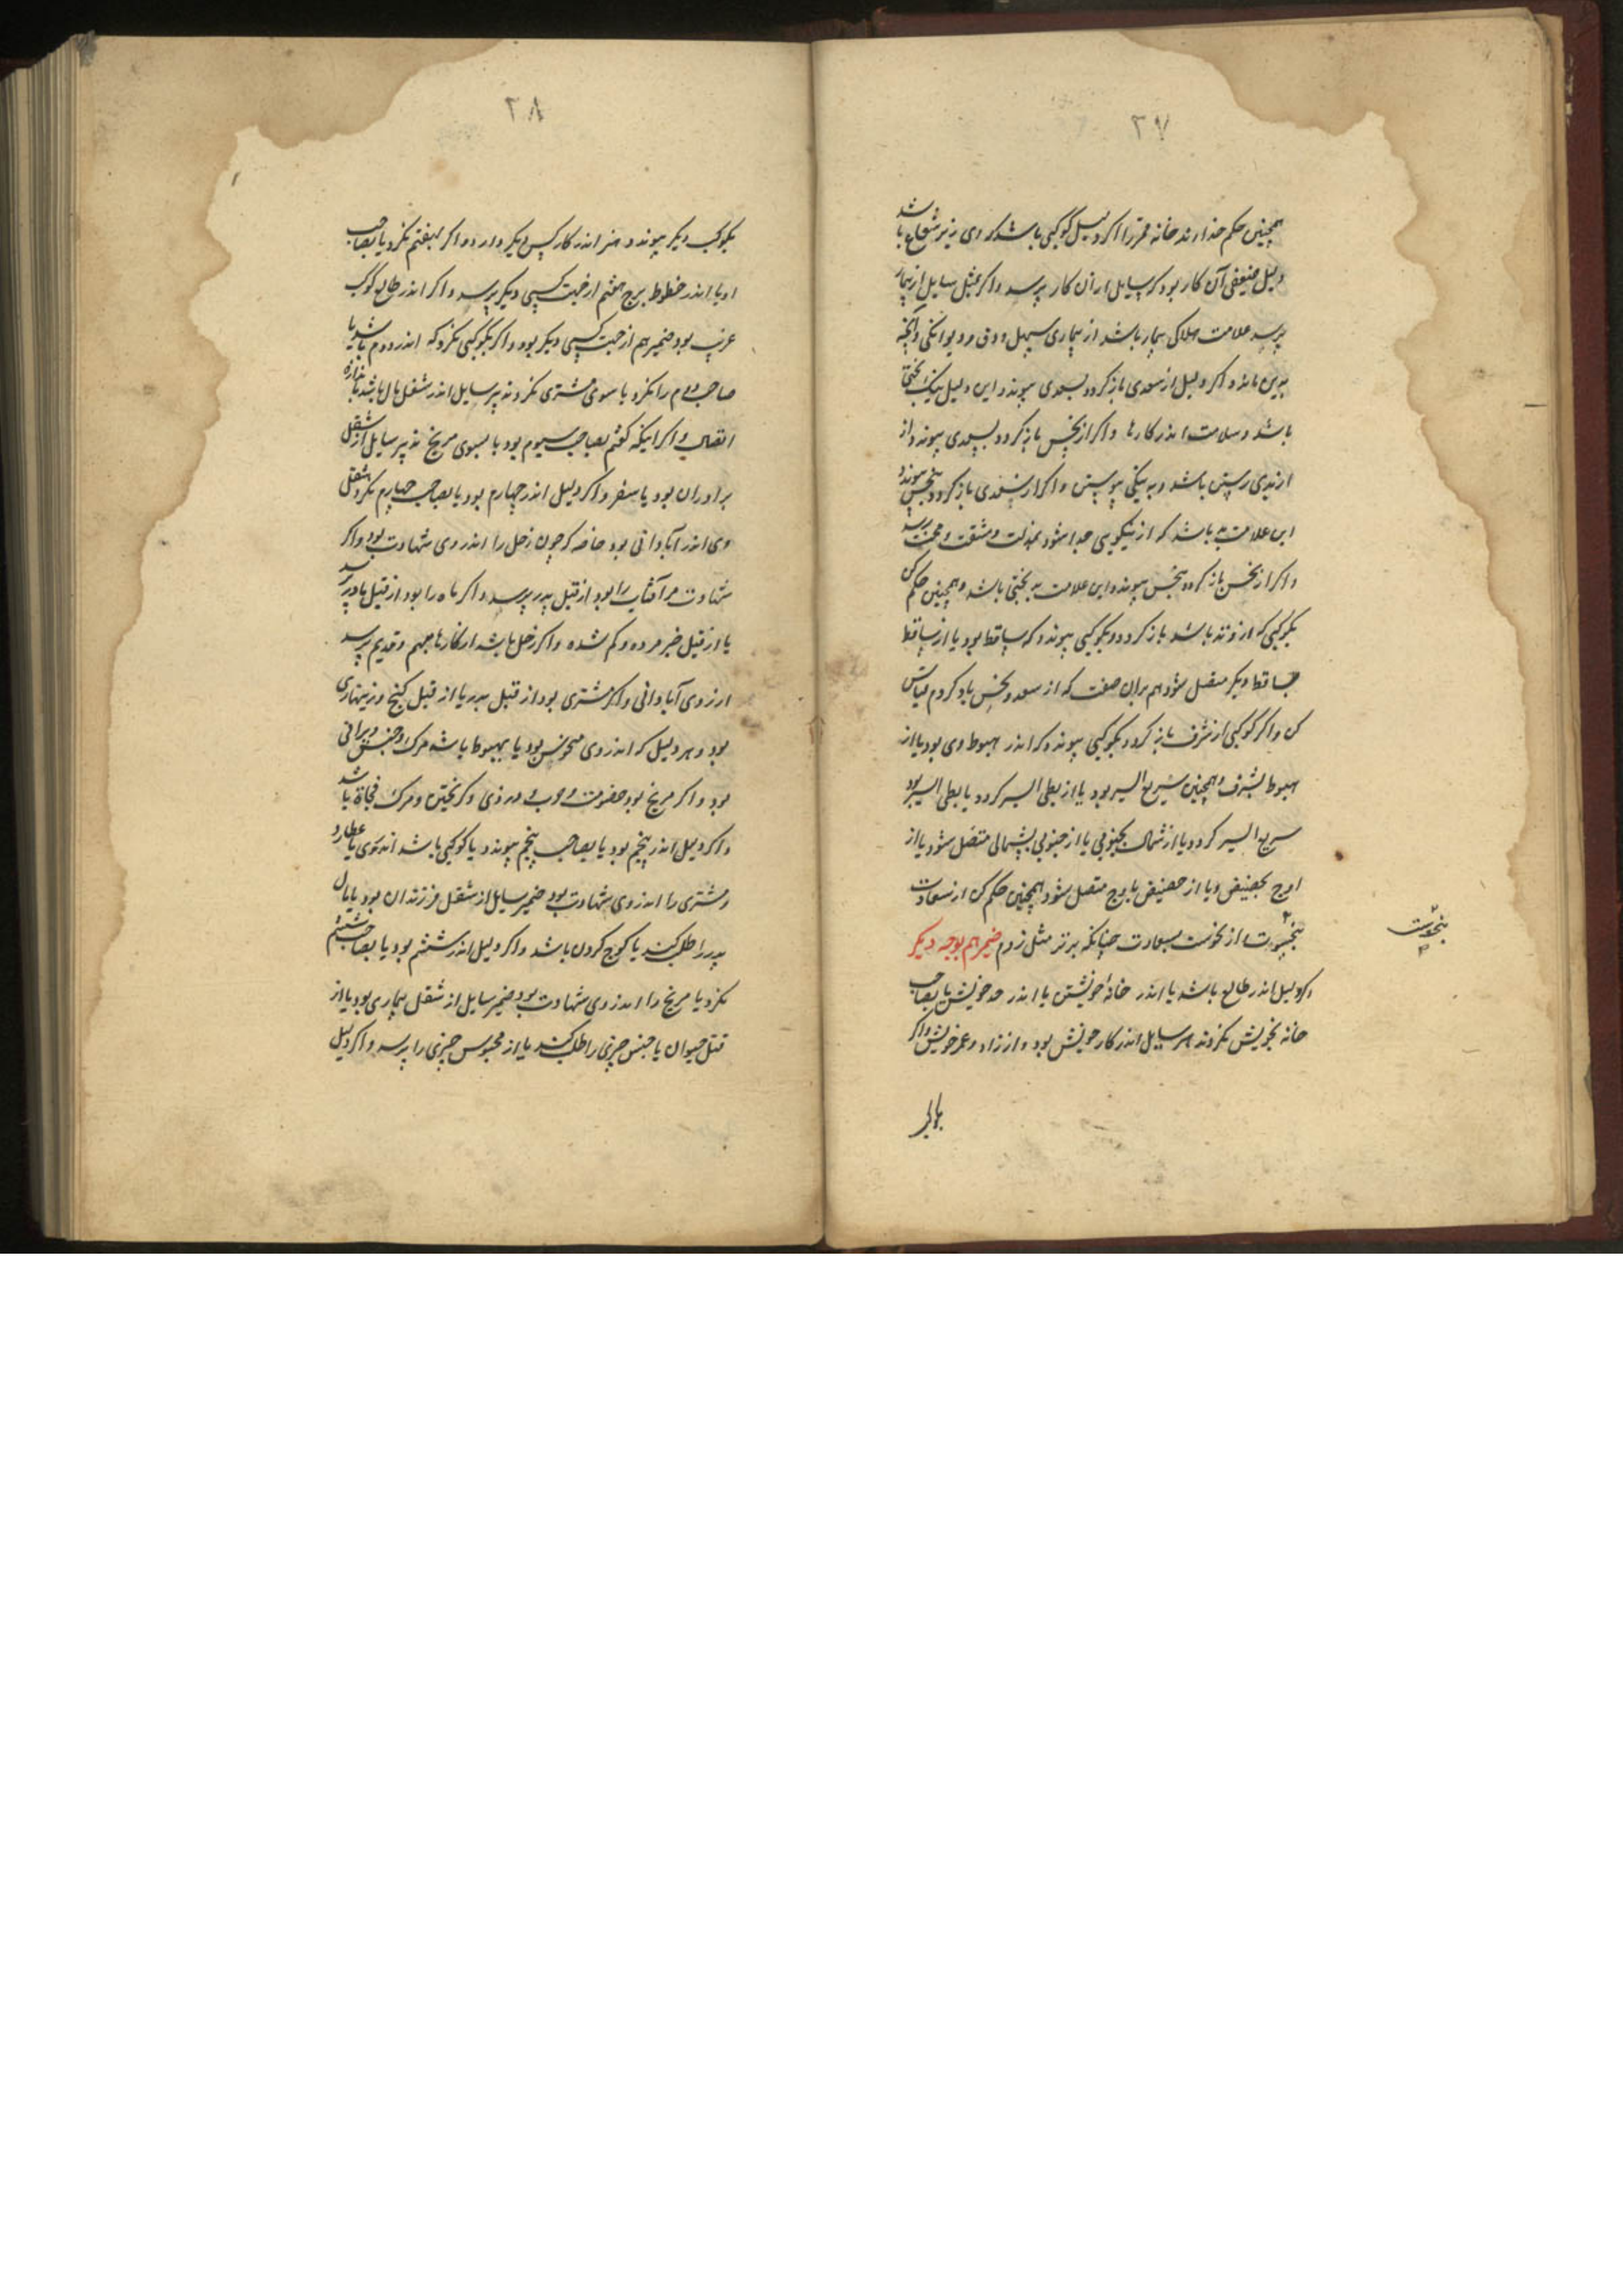 ۲۷
همچنین حکم خداوند خانه قمر را اگر دلیل کوکبی باشد که وی زیر شعاع باشد
دلیل ضعیفی آن کار بود که سایل از آن کار پرسد و اگر مثل سایل از بیمار
پرسد علامت هلاکی بیمار باشد از بیماری سهل و دق و دیوانکی و آنچه
بدین ماند و اگر دلیل از سعدی باز کردد بسعدی پیوندد این دلیل نیک بختی
باشد و سلامت اندر کارها و اگر از نحس باز کردد بسعدی پیوندد از
از بدی رستن باشد و به نیکی پیوستن و اگر از سعدی باز کردد بنحس پیوندد
این علامت بد باشد که از نیکویی جدا شود بمذلت و مشقت و محنت رسد
و اگر از نحس باز کردد بنحس پیوندد این علامت بد بختی باشد و همچنین حکم کن
بکوکبی که از وتد باشد باز کردد و بکوکبی پیوندد که ساقط بود یا از ساقط
بساقط دیگر متصل شود هم بران صفت که از سعد و نحس یاد کردم قیاس
کن و اگر کوکبی از شرف باز کردد بکوکبی پیوندد که اندر هبوط وی بود یا از
هبوط بشرف و همچنین سریع السیر بود یا از بطی السیر کردد یا بطی السیر بود
سریع السیر کردد یا از شمال بجنوبی یا از جنوبی بشمالی متصل شود یا از
اوج بحضیض و یا از حضیض باوج متصل شود همچنین حکم کن از سعادت
بنحوست از نحوست بسعادت چنانکه برتر مثل زدم ضمیر هم بوجه دیکر
اگر دلیل اندر طالع باشد یا اندر خانهٔ خویشتن یا اندر حد خویش یا بصاحب
خانه خویش نکرد تدبیر سایل اندر کار خویش بود و از زاد و عمر خویش و اگر
بنحوست
۲۸
بکوکب دیگر پیوندد ضمیر اندر کار کس دیگر دارد و اگر بهفتم نکرد یا بصاحب
او یا اندر خطوط برج هفتم از جهت کسی دیگر پرسد و اگر اندر طالع کوکب
غریب بود ضمیر هم از جهت کسی دیگر بود و اگر بکوکبی نکرد که اندر دوم باشد یا
صاحب دوم را نکرد یا سوی مشتری نکرد تدبیر سایل اندر شغل مال باشد باندازه
اتصال و اگر اینکه کفتم بصاحب سیوم بود یا بسوی مریخ تدبیر سایل از شغل
برادران بود یا سفر و اگر دلیل اندر چهارم بود یا بصاحب چهارم نکرد شغل
وی اندر آبادانی بود خاصه که چون زحل را اندر وی شهادت بود و اگر
شهادت مر آفتاب را بود از قبل پدر پرسد و اگر ماه را بود از قبل مادر پرسد
یا از قبل خبر مرده و کم شده و اگر زحل باشد از کارها مبهم و قدیم پرسد
از روی آبادانی و اگر مشتری بود از قبل پدر یا از قبل کنج و زینهاری
بود و هر دلیل که اندر وی منحوس بود یا بهبوط باشد مرک و حبس و ویرانی
بود و اگر مریخ بود خصومت و حرب و دزدی و کریختن و مرک فجاة باشد
و اگر دلیل اندر پنجم بود یا بصاحب پنجم پیوندد یا کوکبی باشد اندر وی یا عطارد
و مشتری را اندر وی شهادت بود ضمیر سایل از شغل فرزندان بود یا مال
پدر را طلب کند یا کوچ کردن باشد و اگر دلیل اندر ششم بود یا بصاحب ششم
نکرد یا مریخ را اندر وی شهادت بود ضمیر سایل از شغل بیماری بود یا از
قبل حیوان یا جنس چیزی را طلب کند یا از محبوس چیزی را پرسد و اگر دلیل